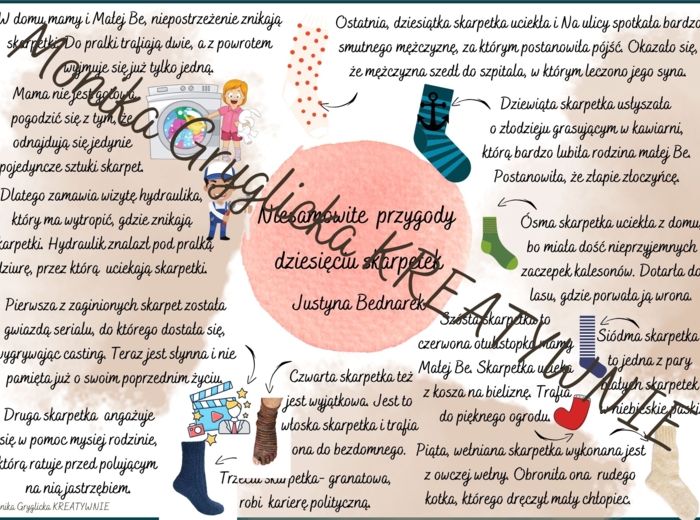 W domu mamy i Małej Be, niepostrzeżenie znikają
skarpetki. Do pralki trafiają dwie, a z powrotem
wyjmuje się już tylko jedną.
Mama nie jest gotowa
pogodzić się z tym, że
odnajdują się jedynie
pojedyncze sztuki skarpet.
Dlatego zamawia wizytę hydraulika,
który ma wytropić, gdzie znikają
skarpetki. Hydraulik znalazł pod pralką
dziurę, przez którą uciekają skarpetki.
Pierwsza z zaginionych skarpet została
gwiazdą serialu, do którego dostała się,
wygrywając casting. Teraz jest słynna i nie
pamięta już o swoim poprzednim życiu.
Druga skarpetka angażuje
się w pomoc mysiej rodzinie,
którą ratuje przed polującym
na nią jastrzębiem.
Monika Gryglicka KREATYWNIE
Niesamowite przygody
dziesięciu skarpetek
Justyna Bednarek
Trzecia skarpetka- granatowa,
robi karierę polityczną.
Czwarta skarpetka też
jest wyjątkowa. Jest to
włoska skarpetka i trafia
ona do bezdomnego.
Piąta, wełniana skarpetka wykonana jest
z owczej wełny. Obroniła ona rudego
kotka, którego dręczył mały chłopiec.
Szósta skarpetka to
czerwona otulstopka mamy
Małej Be. Skarpetka uciekła
z kosza na bieliznę. Trafia
do pięknego ogrodu.
Siódma skarpetka
to jedna z pary
białych skarpetek
w niebieskie paski.
Ósma skarpetka uciekła z domu,
bo miała dość nieprzyjemnych
zaczepek kalesonów. Dotarła do
lasu, gdzie porwała ją wrona.
Dziewiąta skarpetka usłyszała
o złodzieju grasującym w kawiarni,
którą bardzo lubiła rodzina małej Be.
Postanowiła, że złapie złoczyńcę.
Ostatnia, dziesiątka skarpetka uciekła i Na ulicy spotkała bardzo
smutnego mężczyznę, za którym postanowiła pójść. Okazało się,
że mężczyzna szedł do szpitala, w którym leczono jego syna.
Monika Gryglicka KREATYWNIE